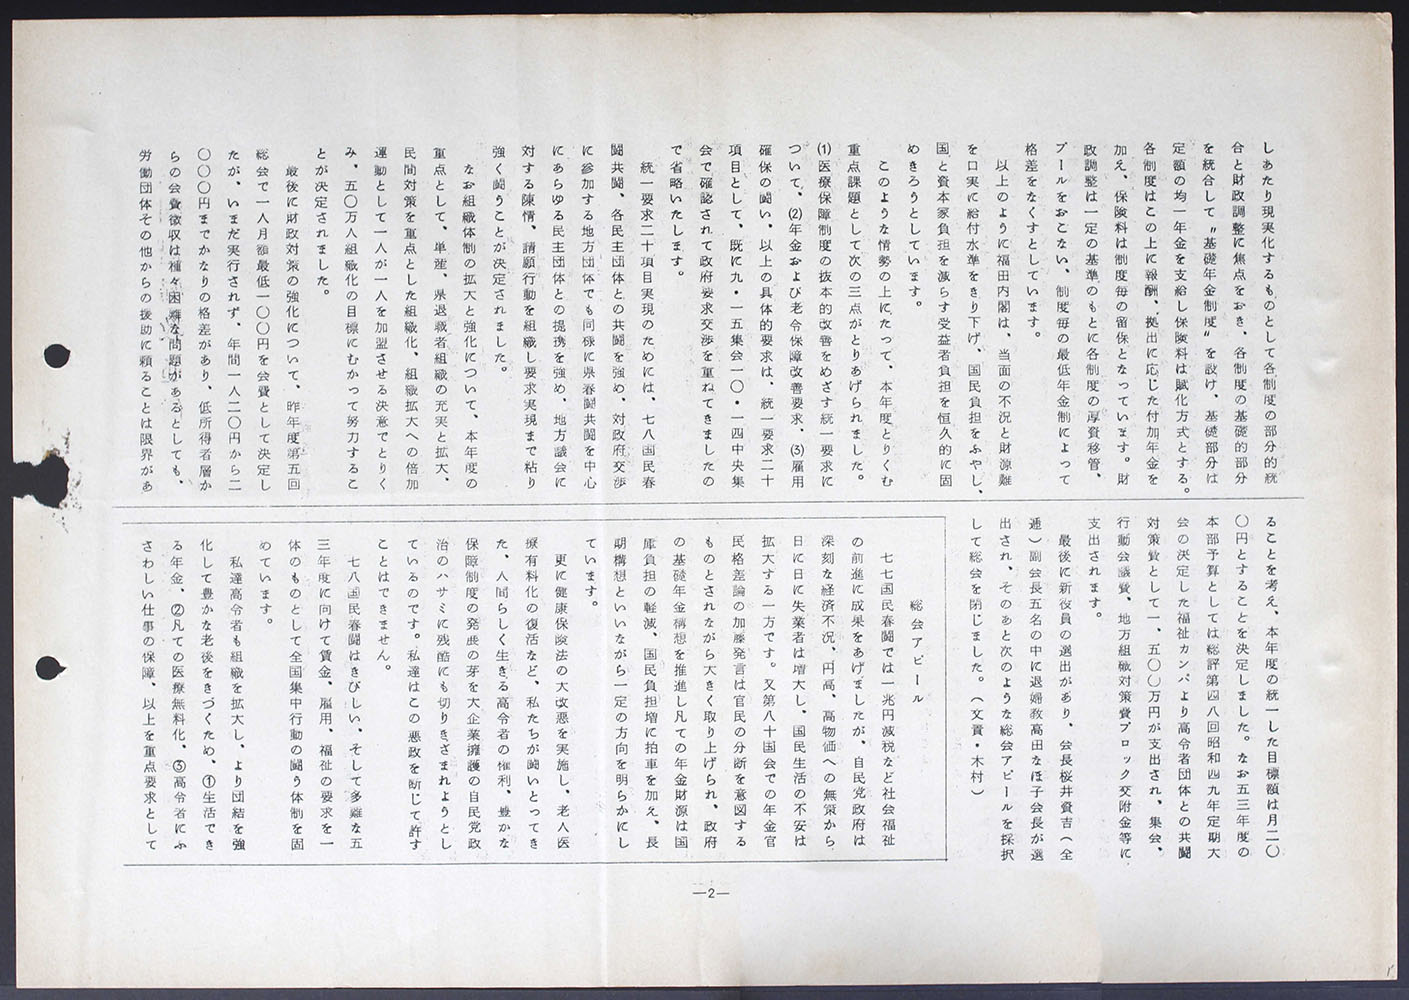 しあたり現実化するものとして各制度の部分的統
合と財政調整に焦点をおき、各制度の基礎的部分
を統合して〃基礎年金制度〃を設け、基礎部分は
定額の均一年金を支給し保険料は賦化方式とする。
各制度はこの上に報酬、拠出に応じた付加年金を
加え、保険料は制度毎の留保となっています。財
政調整は一定の基準のもとに各制度の原資移管、
プールをおこない、制度毎の最低年金制によって
格差をなくすとしています。
以上のように福田内閣は、当面の不況と財源難
を口実に給付水準をきり下げ、国民負担をふやし、
国と資本家負担を減らす受益者負担を恒久的に固
めきろうとしています。
このような情勢の上にたって、本年度とりくむ
重点課題として次の三点がとりあげられました。
⑴医療保障制度の抜本的改善をめざす統一要求に
ついて、⑵年金および老令保障改善要求、⑶雇用
確保の闘い、以上の具体的要求は、統一要求二十
項目として、既に九・一五集会一〇・一四中央集
会で確認されて政府要求交渉を重ねてきましたの
で省略いたします。
統一要求二十項目実現のためには、七八国民春
闘共闘、各民主団体との共闘を強め、対政府交渉
に参加する地方団体でも同様に県春闘共闘を中心
にあらゆる民主団体との提携を強め、地方議会に
対する陳情、請願行動を組織し要求実現まで粘り
強く闘うことが決定されました。
なお組織体制の拡大と強化について、本年度の
重点として、単産、県退職者組織の充実と拡大、
民間対策を重点とした組織化、組織拡大への倍加
運動として一人が一人を加盟させる決意でとりく
み、五〇万人組織化の目標にむかって努力するこ
とが決定されました。
最後に財政対策の強化について、昨年度第五回
総会で一人月額最低一〇〇円を会費として決定し
たが、いまだ実行されず、年間一人二〇円から二
〇〇〇円までかなりの格差があり、低所得者層か
らの会費徴収は種々困難な問題があるとしても、
労働団体その他からの援助に頼ることは限界があ
ることを考え、本年度の統一した目標額は月二〇
〇円とすることを決定しました。なお五三年度の
本部予算としては総評第四八回昭和四九年定期大
会の決定した福祉カンパより高令者団体との共闘
対策費として一、五〇〇万円が支出され、集会、
行動会議費、地方組織対策費ブロック交附金等に
支出されます。
最後に新役員の選出があり、会長桜井資吉（全
逓）副会長五名の中に退婦教高田なほ子会長が選
出され、そのあと次のような総会アピールを採択
して総会を閉じました。（文責・木村）
総会アピール
七七国民春闘では一兆円減税など社会福祉
の前進に成果をあげましたが、自民党政府は
深刻な経済不況、円高、高物価への無策から
日に日に失業者は増大し、国民生活の不安は
拡大する一方です。又第八十国会での年金官
民格差論の加藤発言は官民の分断を意図する
ものとされながら大きく取り上げられ、政府
の基礎年金構想を推進し凡ての年金財源は国
庫負担の軽減、国民負担増に拍車を加え、長
期構想といいながら一定の方向を明らかにし
ています。
更に健康保険法の大改悪を実施し、老人医
療有料化の復活など、私たちが闘いとってき
た、人間らしく生きる高令者の権利、豊かな
保障制度の発展の芽を大企業擁護の自民党政
治のハサミに残酷にも切りきざまれようとし
ているのです。私達はこの悪政を断じて許す
ことはできません。
七八国民春闘はきびしい、そして多難な五
三年度に向けて賃金、雇用、福祉の要求を一
体のものとして全国集中行動の闘う体制を固
めています。
私達高令者も組織を拡大し、より団結を強
化して豊かな老後をきづくため、①生活でき
る年金、②凡ての医療無料化、③高令者にふ
さわしい仕事の保障、以上を重点要求として
—2—